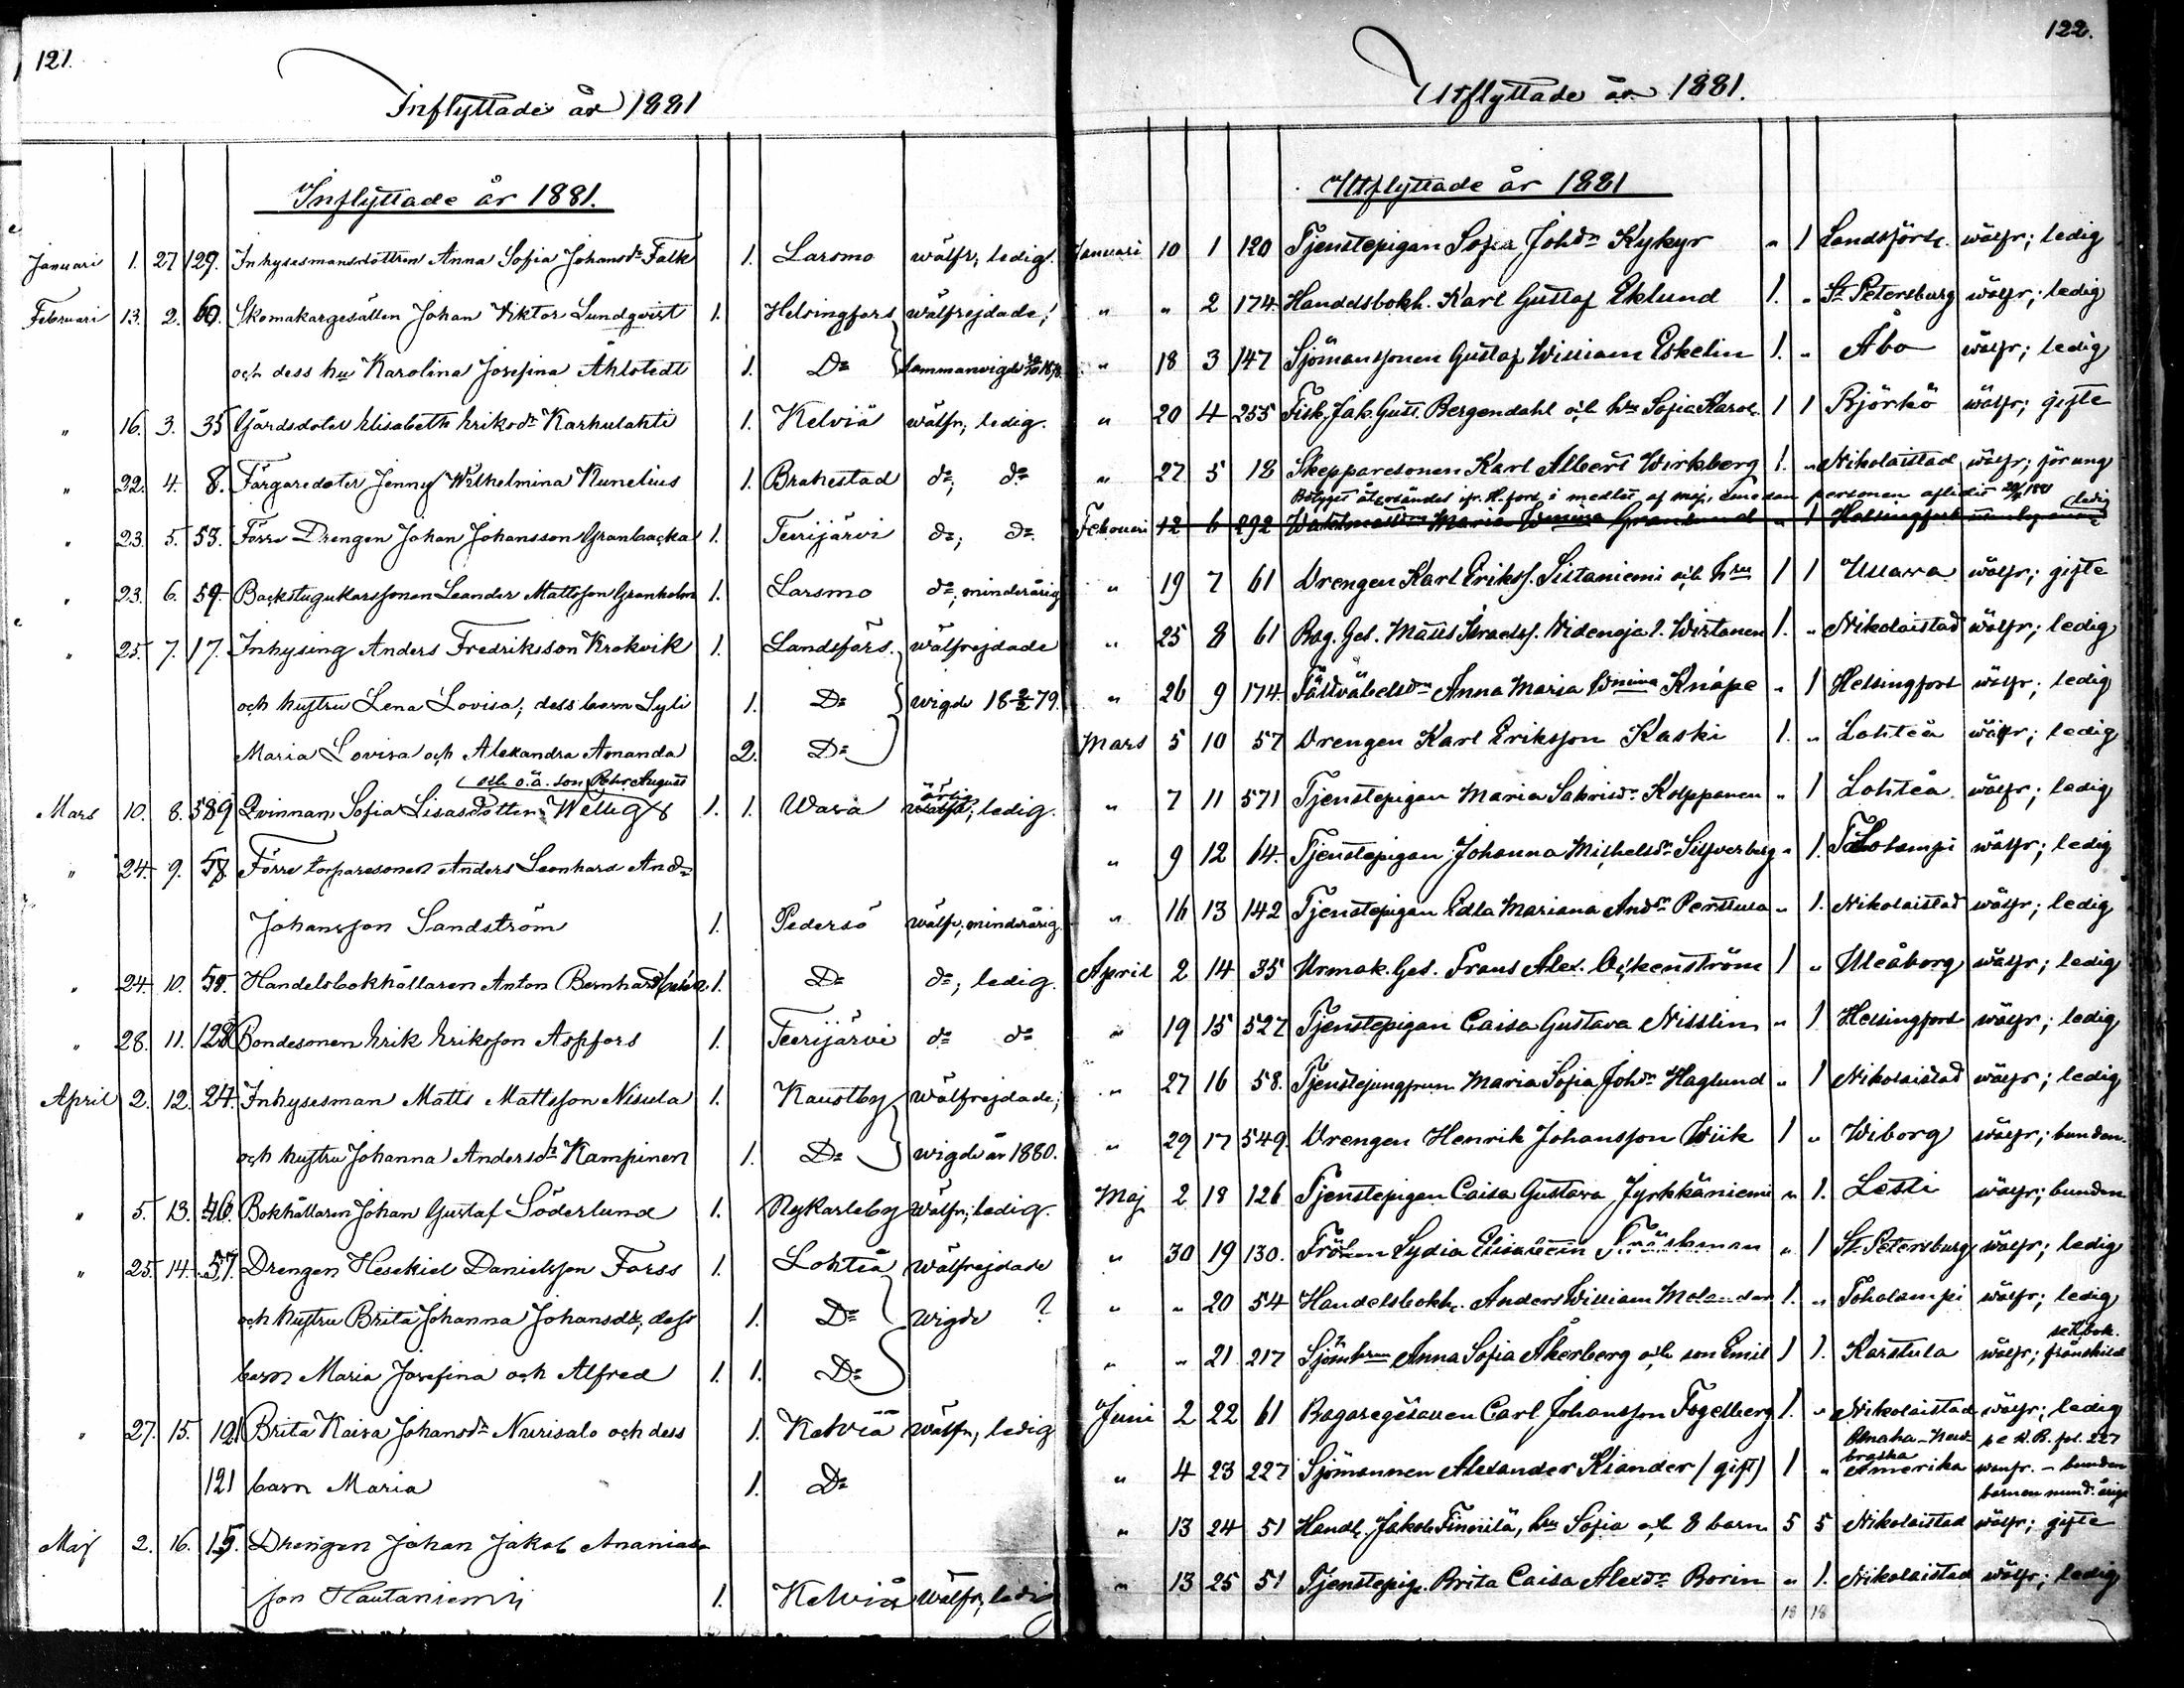 121.
Inflyttade år 1881
Inflyttade år 1881.
Januari 1. 27 129. Inhysesmansdottren Anna Sofia Johansdr Falk 1. Larsmo wälfr; ledig.
Februari 13. 2. 60. Skomakargesällen Johan Wiktor Lundqvist 1. Helsingfors wälfrejdade;
och dess hu Karolina Josefina Åhlstedt 1. Do sammanvigde
" 16. 3. 35 Gårdsdoter Elisabeth Eriksdr Karhulahti 1. Kelviå wälfr; ledig.
" 22. 4. 8. Färgaredoter Jenny Wilhelmina Runelius 1. Brahestad do; do
" 23. 5. 53. Förre Drengen Johan Johansson Granbacka 1. Teerijärvi do; do
" 23. 6. 59. Backstugukarssonen Leander Mattsson Granholm 1. Larsmo do; minderårig
" 25. 7. 17. Inhysing Anders Fredriksson Krokvik 1. Landsförs. wälfrejdade
och hustru Lena Lovisa; dess barn Lyli 1. Do wigde 18 2/2 79.
Maria Lovisa och Alexandra Amanda 2. Do
och o.ä. son Pehr August
Mars 10. 8. 589 Qvinnan Sofia Lisasdotter Wellig 1. 1. Wasa ärlig ledig.
" 24. 9. 58. Förre torparesonen Anders Leonhard And
Johansson Sandström 1. Pedersö wälfr; minderårig
" 24. 10. 58. Handelsbokhållaren Anton Bernhard 1. Do do; ledig.
" 28. 11. 128 Bondesonen Erik Eriksson Aspfors 1. Teerijärvi do do
April 2. 12. 24. Inhysesman Matts Mattsson Nisula 1. Kaustby wälfrejdade;
och hustru Johanna Andersdr Kampinen 1. Do wigde år 1880.
" 5. 13. 46. Bokhållaren Johan Gustaf Söderlund 1. Nykarleby wälfr; ledig.
" 25. 14. 57. Drengen Hesekiel Danielsson Forss 1. Lohteå wälfrejdade
och hustru Brita Johanna Johansdr; dess 1. Do wigde ?
barn Maria Josefina och Alfred 1. 1. Do
" 27. 15. 121 Brita Kaisa Johansdr Nurisalo och dess 1. Kelviå wälfr; ledig
121 barn Maria 1. Do
Maj 2. 16. 15. Drengen Johan Jakob Ananias
son Hautaniemi 1. Kelviå wälfr; ledig
122.
Utflyttade år 1881.
Utflyttade år 1881
Januari 10 1 120 Tjenstepigan Sofia Johdr Kykyr " 1 Landsförs. wälfr; ledig
" " 2 174 Handelsbokh. Karl Gustaf Eklund 1. " St Petersburg wälfr; ledig
" 18 3 147 Sjömanssonen Gustaf William Eskelin 1. " Åbo wälfr; ledig
" 20 4 255 Fisk. Jak. Gust. Bergendahl och hu Sofia Karol. 1 1 Björkö wälfr; gifte
" 27 5 18 Skepparesonen Karl Albert Wirkberg 1. " Nikolaistad wälfr; för ung
Betyget återsändes ifr. H.fors i medlet af maj, emedan personen aflidit
Februari 12 6 292 Maria Wmina Granlund " 1 Helsingfors ledig
" 19 7 61 Drengen Karl Erikss. Sistaniemi och hru 1 1 Ullava wälfr; gifte
" 25 8 61 Bag. Ges. Matts Israelss. Widenoja l. Wirtanen 1. " Nikolaistad wälfr; ledig
" 26 9 174. Fältväbelsdr Anna Maria Wmina Knape " 1 Helsingfors wälfr; ledig
Mars 5 10 57 Drengen Karl Eriksson Kaski 1. " Lohteå wälfr; ledig
" 7 11 571 Tjenstepigan Maria Sakrisdr Kolppanen " 1 Lohteå wälfr; ledig
" 9 12 64. Tjenstepigan Johanna Michelsdr Silfverberg " 1. Toholampi wälfr; ledig
" 16 13 142 Tjenstepigan Edla Mariana Anddr Penttula " 1. Nikolaistad wälfr; ledig
April 2 14 35 Urmak. Ges. Frans Alex. Åckenström 1 " Uleåborg wälfr; ledig
" 19 15 527 Tjenstepigan Caisa Gustava Nisslin " 1 Helsingfors wälfr; ledig
" 27 16 58. Tjenstejungfrun Maria Sofia Johdr Haglund " 1 Nikolaistad wälfr; ledig
" 29 17 549. Drengen Henrik Johansson Wiik 1 " Wiborg wälfr; bunden.
Maj 2 18 126 Tjenstepigan Caisa Gustava Jyrkkäniemi " 1. Lesti wälfr; bunden
" 30 19 130. Fröken Lydia Elisabeth " 1 St. Petersburg wälfr; ledig
" " 20 54 Handelsbokh. Anders William Molander 1. " Toholampi wälfr; ledig
" " 21 217 Sjömhrun Anna Sofia Åkerberg och son Emil 1 1. Karstula wälfr; frånskild
Juni 2 22 61 Bagaregesällen Carl Johansson Fogelberg 1. " Nikolaistad wälfr; ledig
Omaha - Nebraska
" 4 23 227 Sjömannen Alexander Kiander (gift) 1 " Amerika wälfr. - bunden
" 13 24 51 Handl. Jakob Finnilä, hu Sofia och 8 barn 5 5 Nikolaistad wälfr; gifte
" 13 25 51 Tjenstepig. Brita Caisa Alexdr Borin " 1. Nikolaistad wälfr; ledig
18 18